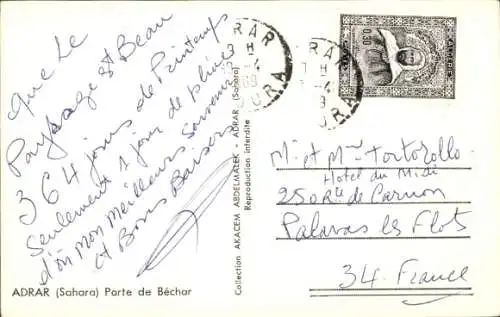 que Le
Paysage est Beau
364 jours de Printemps
Seulement 1 jour de pluies
d'où mon meilleurs souvenir
et Bons Baisers
ADRAR (Sahara) Porte de Béchar
Collection AKACEM ABDELMALEK - ADRAR (Sahara)
Reproduction interdite
ALGERIE
0,30
M. et Mme Tortorollo
Hotel du Midi
250 Rte de Carnon
Palavas les Flots
34. France